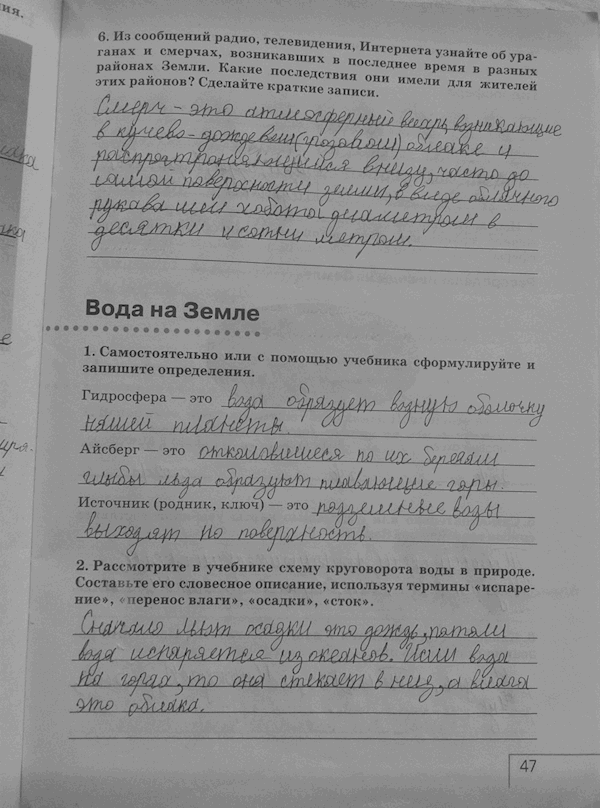 ния.
6. Из сообщений радио, телевидения, Интернета узнайте об ура-
ганах и смерчах, возникавших в последнее время в разных
районах Земли. Какие последствия они имели для жителей
этих районов? Сделайте краткие записи.
Смерч - это атмосферный вихрь, возникающие
в кучево - дождевом (грозовом) облаке и
распространяющийся вниз, часто до
самой поверхности земли, в виде облачного
рукава или хобота диаметром в
десятки и сотни метром.
Вода на Земле
1. Самостоятельно или с помощью учебника сформулируйте и
запишите определения.
Гидросфера — это вода образует водную оболочку
нашей планеты.
Айсберг — это отколовшиеся по их берегам
глыбы льда образуют плавающие горы.
Источник (родник, ключ) — это подземные воды
выходят на поверхность.
2. Рассмотрите в учебнике схему круговорота воды в природе.
Составьте его словесное описание, используя термины «испаре-
ние», «перенос влаги», «осадки», «сток».
Сначало льют осадки это дождь, потом
вода испаряется из океанов. Если вода
на горах, то она стекает в низ, а влага
это облака.
47